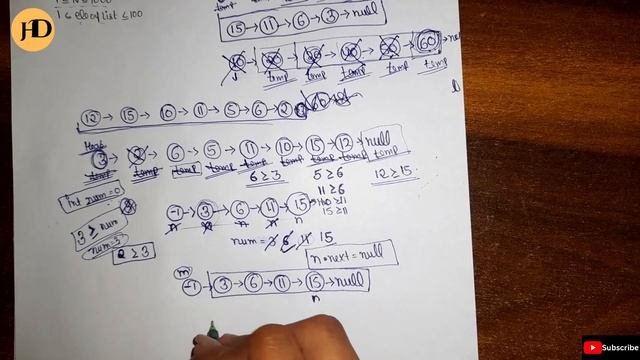 HD
1 ≤ N ≤ 1000
≤ 100
15 → 11 → 6 → 3 → null
60
temp temp temp temp temp
12 → 15 → 10 → 11 → 5 → 6 → 2
Head
3 → 2 → 6 → 5 → 11 → 10 → 15 → 12 → null
temp temp temp temp temp temp temp temp temp
6 ≥ 3 5 ≥ 6 12 ≥ 15
11 ≥ 6
int num = 0
-1 → 3 → 6 → 11 → 15
15 ≥ 11
n n n n n
3 ≥ num
num = 3
2 ≥ 3
num = 3 6 11 15
n.next = null
m
-1 → 3 → 6 → 11 → 15 → null
n
Subscribe